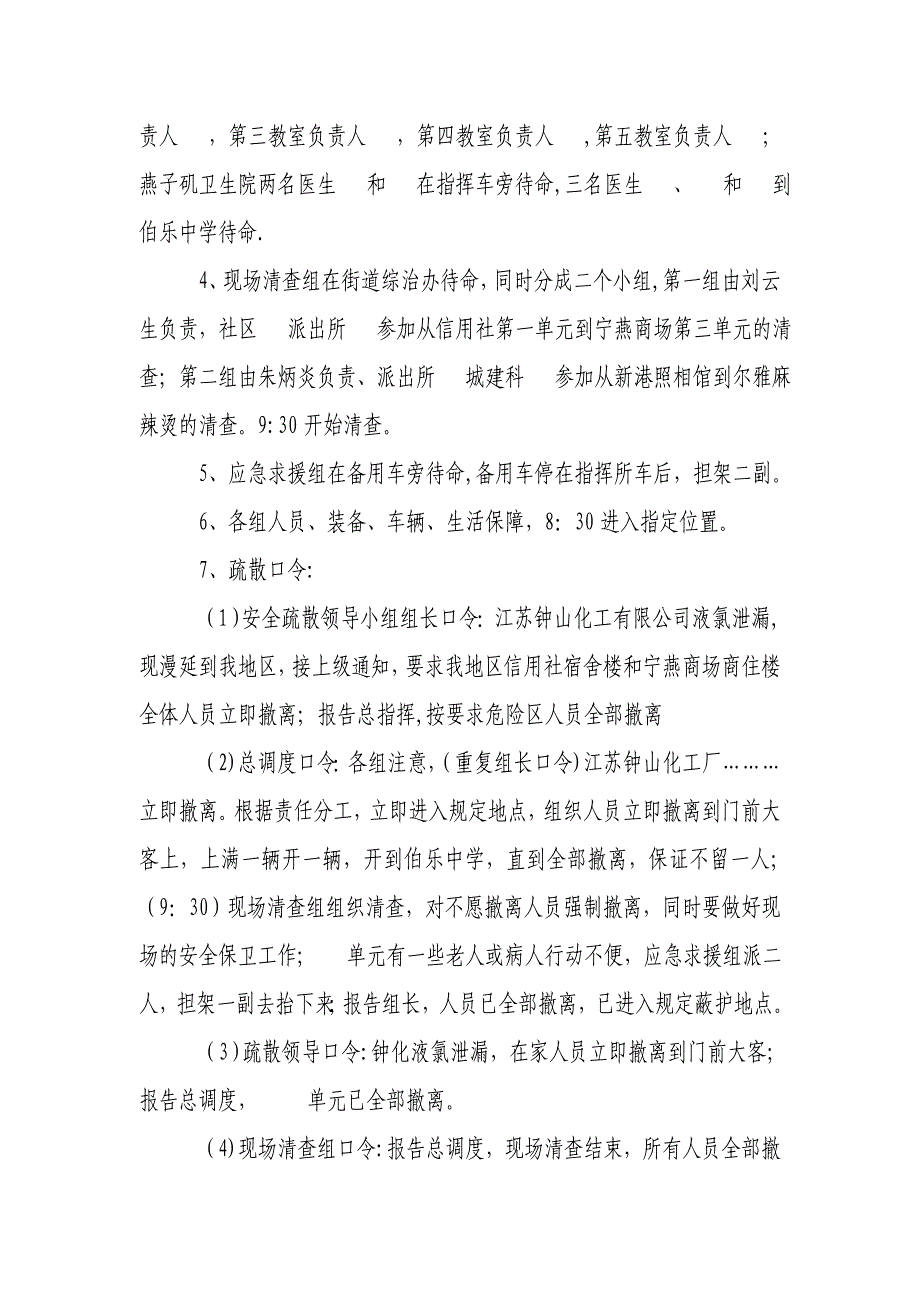 责人   ,第三教室负责人   ,第四教室负责人   ,第五教室负责人   ;
燕子矶卫生院两名医生   和   在指挥车旁待命,三名医生   、   和   到
伯乐中学待命.
4、现场清查组在街道综治办待命,同时分成二个小组,第一组由刘云
生负责,社区   派出所   参加从信用社第一单元到宁燕商场第三单元的清
查;第二组由朱炳炎负责、派出所   城建科   参加从新港照相馆到尔雅麻
辣烫的清查。9:30开始清查。
5、应急求援组在备用车旁待命,备用车停在指挥所车后,担架二副。
6、各组人员、装备、车辆、生活保障,8:30进入指定位置。
7、疏散口令:
(1)安全疏散领导小组组长口令:江苏钟山化工有限公司液氯泄漏,
现漫延到我地区,接上级通知,要求我地区信用社宿舍楼和宁燕商场商住楼
全体人员立即撤离;报告总指挥,按要求危险区人员全部撤离
(2)总调度口令:各组注意,(重复组长口令)江苏钟山化工厂………
立即撤离。根据责任分工,立即进入规定地点,组织人员立即撤离到门前大
客上,上满一辆开一辆,开到伯乐中学,直到全部撤离,保证不留一人;
(9:30)现场清查组组织清查,对不愿撤离人员强制撤离,同时要做好现
场的安全保卫工作;   单元有一些老人或病人行动不便,应急求援组派二
人,担架一副去抬下来;报告组长,人员已全部撤离,已进入规定蔽护地点。
(3)疏散领导口令:钟化液氯泄漏,在家人员立即撤离到门前大客;
报告总调度,   单元已全部撤离。
(4)现场清查组口令:报告总调度,现场清查结束,所有人员全部撤